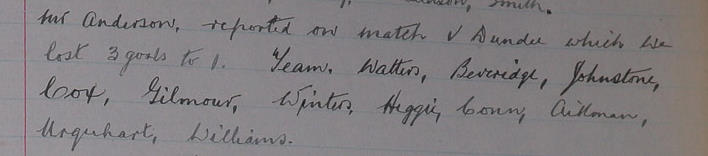 Smith.
Mr Anderson, reported on match v Dundee which we
lost 3 goals to 1. Team. Watters, Beveridge, Johnstone,
Cox, Gilmour, Winters, Heggie, Conn, Aitkman,
Urquhart, Williams.